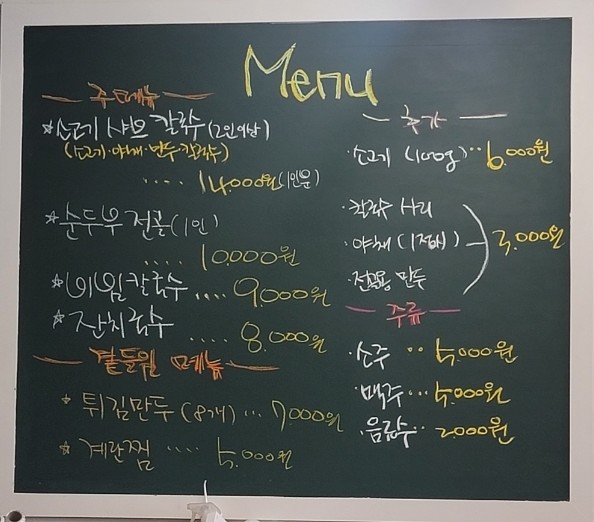 Menu
주 메뉴
*소고기 샤브 칼국수 (2인이상)
(소고기·야채·만두·칼국수)
.... 14,000원 (1인분)
*순두부 전골 (1인)
.... 10,000원
*비빔칼국수 .... 9,000원
*잔치국수 .... 8,000원
곁들일 메뉴
*튀김만두 (8개) ... 7,000원
*계란찜 .... 5,000원
추가
·소고기 (100g) .. 6,000원
·칼국수 사리
·야채 (1접시) 3,000원
·전골용 만두
주류
·소주 .. 5,000원
·맥주 ... 5,000원
·음료수 .. 2,000원